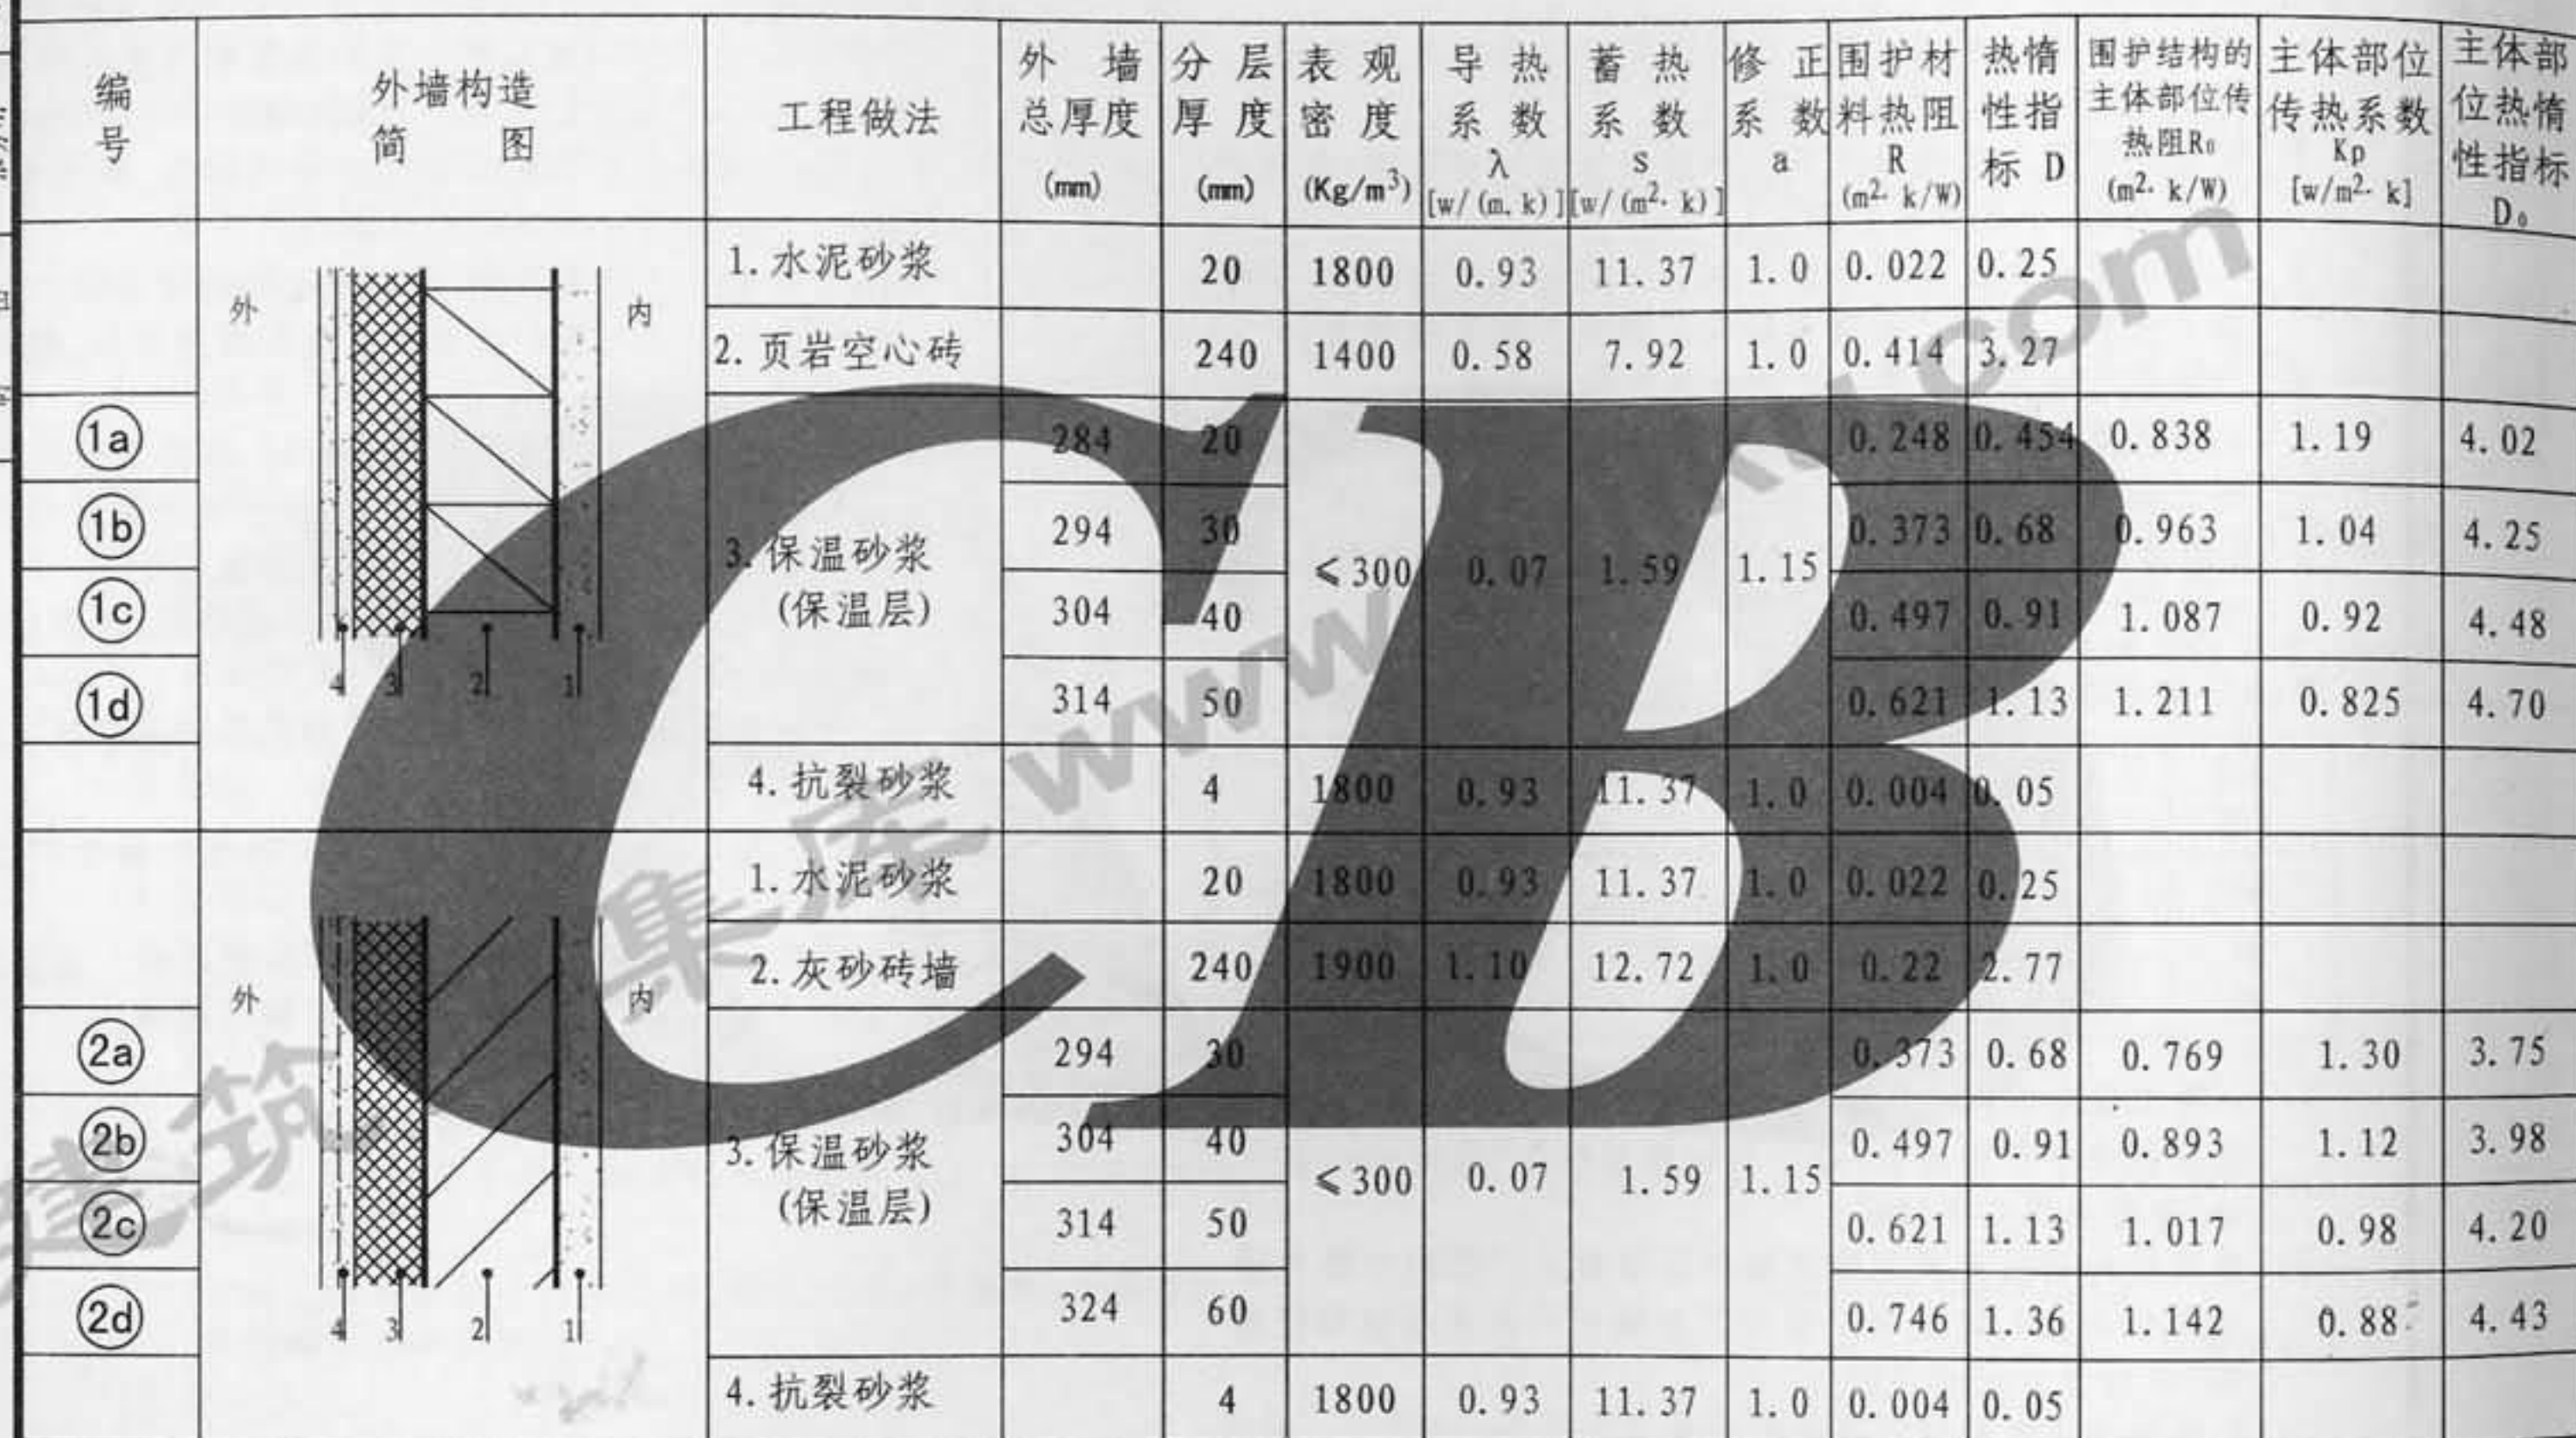 编号 外墙构造简图 工程做法 外墙总厚度(mm) 分层厚度(mm) 表观密度(Kg/m³) 导热系数λ[w/(m.k)] 蓄热系数S[w/(m²·k)] 修正系数a 围护材料热阻R(m²·k/W) 热惰性指标D 围护结构的主体部位传热阻R₀(m²·k/W) 主体部位传热系数Kp[w/m²·k] 主体部位热惰性指标D₀
外 内
4 3 2 1
1.水泥砂浆 20 1800 0.93 11.37 1.0 0.022 0.25
2.页岩空心砖 240 1400 0.58 7.92 1.0 0.414 3.27
3.保温砂浆
(保温层)
≤300 0.07 1.59 1.15
1a 284 20 0.248 0.454 0.838 1.19 4.02
1b 294 30 0.373 0.68 0.963 1.04 4.25
1c 304 40 0.497 0.91 1.087 0.92 4.48
1d 314 50 0.621 1.13 1.211 0.825 4.70
4.抗裂砂浆 4 1800 0.93 11.37 1.0 0.004 0.05
外 内
4 3 2 1
1.水泥砂浆 20 1800 0.93 11.37 1.0 0.022 0.25
2.灰砂砖墙 240 1900 1.10 12.72 1.0 0.22 2.77
3.保温砂浆
(保温层)
≤300 0.07 1.59 1.15
2a 294 30 0.373 0.68 0.769 1.30 3.75
2b 304 40 0.497 0.91 0.893 1.12 3.98
2c 314 50 0.621 1.13 1.017 0.98 4.20
2d 324 60 0.746 1.36 1.142 0.88 4.43
4.抗裂砂浆 4 1800 0.93 11.37 1.0 0.004 0.05
CB
建筑 集库 www
.com